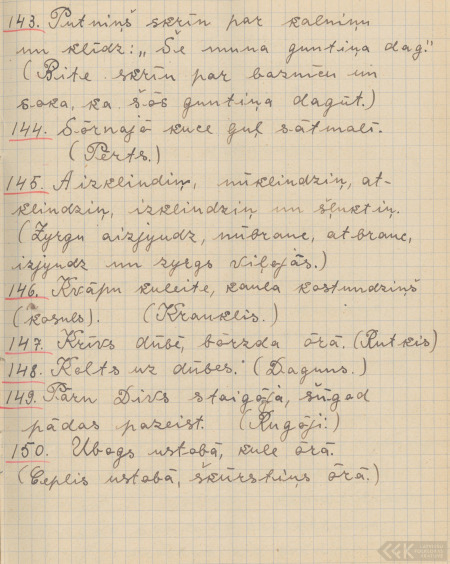 143. Putniņš skrīn par kalniņu
un klīdz: „Še muna guntiņa dag."
(Bite skrīn par baznīcu un
soka, ka šōs guntiņa dagūt.)
144. Sōrnajō kuce guļ sātmalī.
(Pērts.)
145. Aizklindziņ, nūklindziņ, at-
klindziņ, izklindziņ un šļuktiņ.
(Zyrgu aizjyudz, nūbrauc, atbrauc,
izjyudz un zyrgs viļojās.)
146. Kvāpu kuleite, kaula kostundziņš
(kosuls). (Krauklis.)
147. Krīvs dūbē, bōrzda ōrā. (Rutkis)
148. Kolts uz dūbes. (Daguns.)
149. Pārn Divs staigōja, šūgad
pādas pazeist. (Rugōji.)
150. Ubogs ustobā, kule ōrā.
(Ceplis ustobā, škūrstiņs ōrā.)